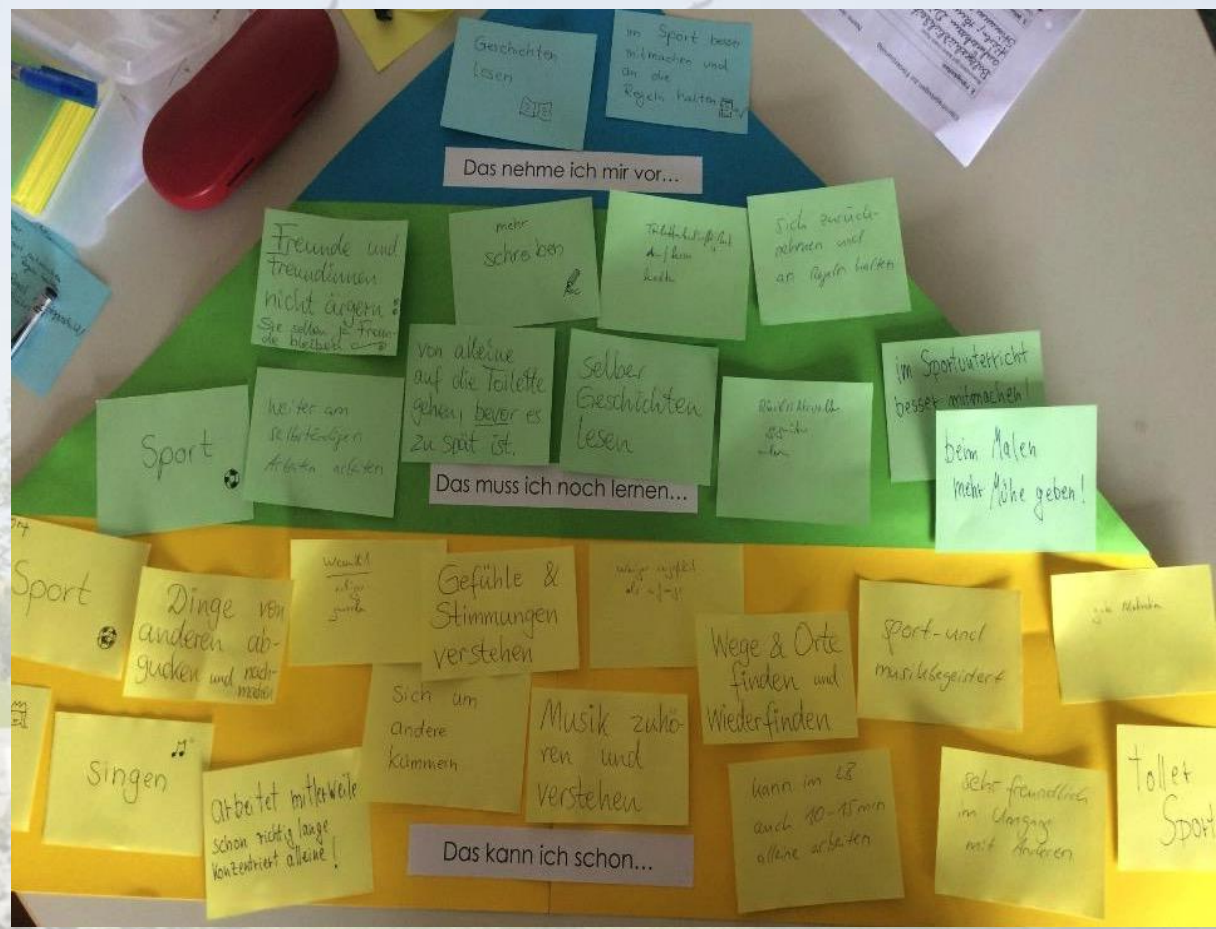 Geschichten
lesen
im Sport besser
mitmachen und
an die
Regeln halten
Das nehme ich mir vor...
Freunde und
Freundinnen
nicht ärgern!
Sie sollen ja Freun-
de bleiben
mehr
schreiben
sich zurück-
nehmen und
an Regeln halten
Sport
weiter am
selbständigen
Arbeiten arbeiten
von alleine
auf die Toilette
gehen, bevor es
zu spät ist.
selber
Geschichten
lesen
im Sportunterricht
besser mitmachen!
beim Malen
mehr Mühe geben!
Das muss ich noch lernen...
Sport
Dinge von
anderen ab-
gucken und nach-
machen
Gefühle &
Stimmungen
verstehen
Wege & Orte
finden und
Wiederfinden
sport- und
musikbegeistert
singen
arbeitet mitlerweile
schon richtig lange
konzentriert alleine!
Sich um
andere
kümmern
Musik zuhö-
ren und
verstehen
kann im
auch 10-15 min
alleine arbeiten
sehr freundlich
im Umgang
mit Anderen
toller
Sport
Das kann ich schon...